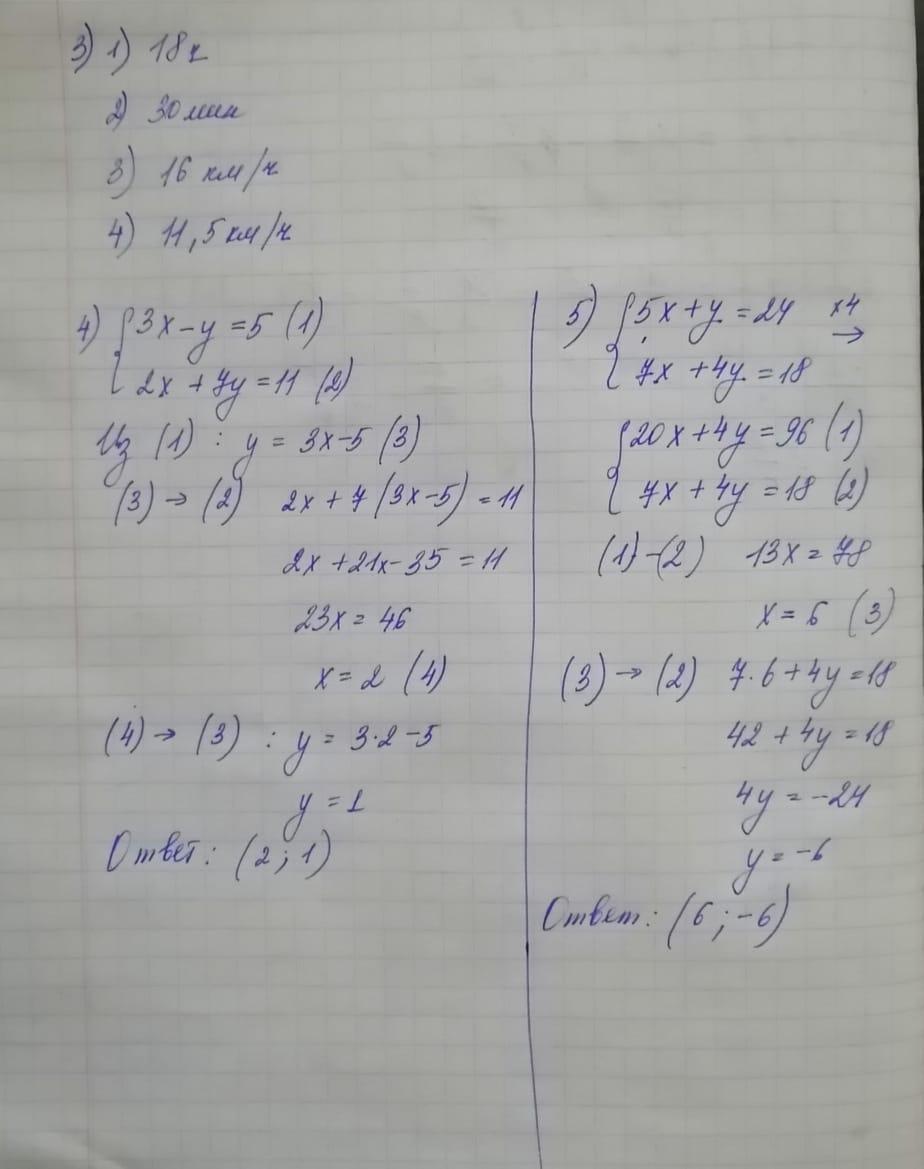 3) 1) 18ч
2) 30 мин
3) 16 км/ч
4) 11,5 км/ч
4) { 3x - y = 5 (1)
2x + 7y = 11 (2)
Из (1) : y = 3x-5 (3)
(3) → (2) 2x + 7(3x-5) = 11
2x + 21x - 35 = 11
23x = 46
x = 2 (4)
(4) → (3) : y = 3·2-5
y = 1
Ответ: (2 ; 1)
5) { 5x + y = 24 x4 →
7x + 4y = 18
{ 20x + 4y = 96 (1)
7x + 4y = 18 (2)
(1) - (2) 13x = 78
x = 6 (3)
(3) → (2) 7·6 + 4y = 18
42 + 4y = 18
4y = -24
y = -6
Ответ: (6 ; -6)